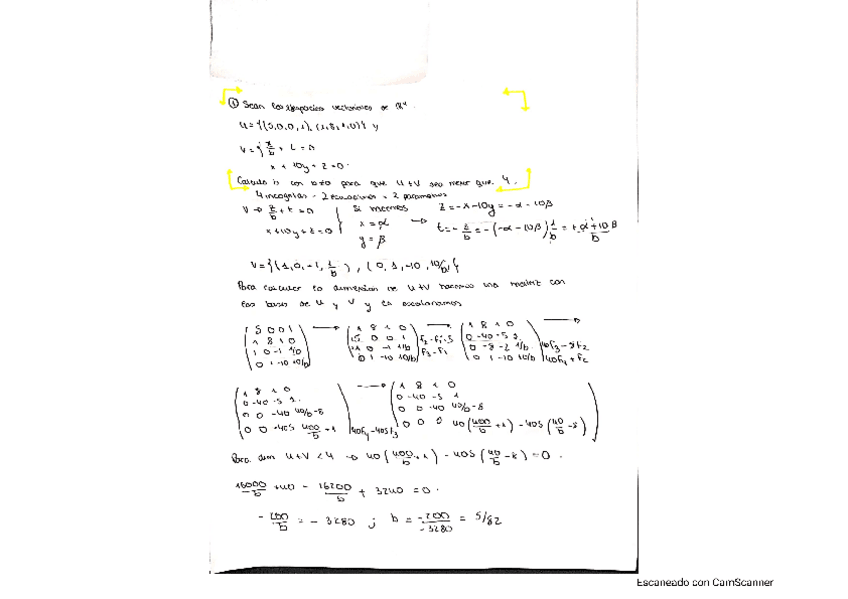 ① Sean los subespacios vectoriales de R⁴.
U={(5,0,0,1), (1,8,1,0)} y
V={ z/b + t = 0
x + 10y + z = 0.
Calcula b con b≠0 para que U+V sea menor que 4.
4 incognitas - 2 ecuaciones = 2 parametros
V → z/b + t = 0 } Si hacemos z = -x - 10y = -α - 10β
x + 10y + z = 0 x = α → t = - z/b = -(-α - 10β) 1/b = + α + 10β / b
y = β
V={(1, 0, -1, 1/b), (0, 1, -10, 10/b)}
Para calcular la dimension de U+V hacemos una matriz con
las bases de U y V y la escalonamos
( 5 0 0 1 ) → ( 1 8 1 0 ) ( 1 8 1 0 ) →
( 1 8 1 0 ) ( 5 0 0 1 ) F2-F1·5 ( 0 -40 -5 1 )
( 1 0 -1 1/b ) ( 1 0 -1 1/b ) F3-F1 ( 0 -8 -2 1/b ) 40F3-8F2
( 0 1 -10 10/b ) ( 0 1 -10 10/b ) ( 0 1 -10 10/b ) 40F4+F2
( 1 8 1 0 ) → ( 1 8 1 0 )
( 0 -40 -5 1 ) ( 0 -40 -5 1 )
( 0 0 -40 40/b -8 ) ( 0 0 -40 40/b -8 )
( 0 0 -405 400/b + 1 ) 40F4-405F3 ( 0 0 0 40(400/b + 1) - 405(40/b - 8) )
Para dim U+V < 4 → 40(400/b + 1) - 405(40/b - 8) = 0.
16000/b + 40 - 16200/b + 3240 = 0.
- 200/b = - 3280 ; b = -200/-3280 = 5/82
Escaneado con CamScanner